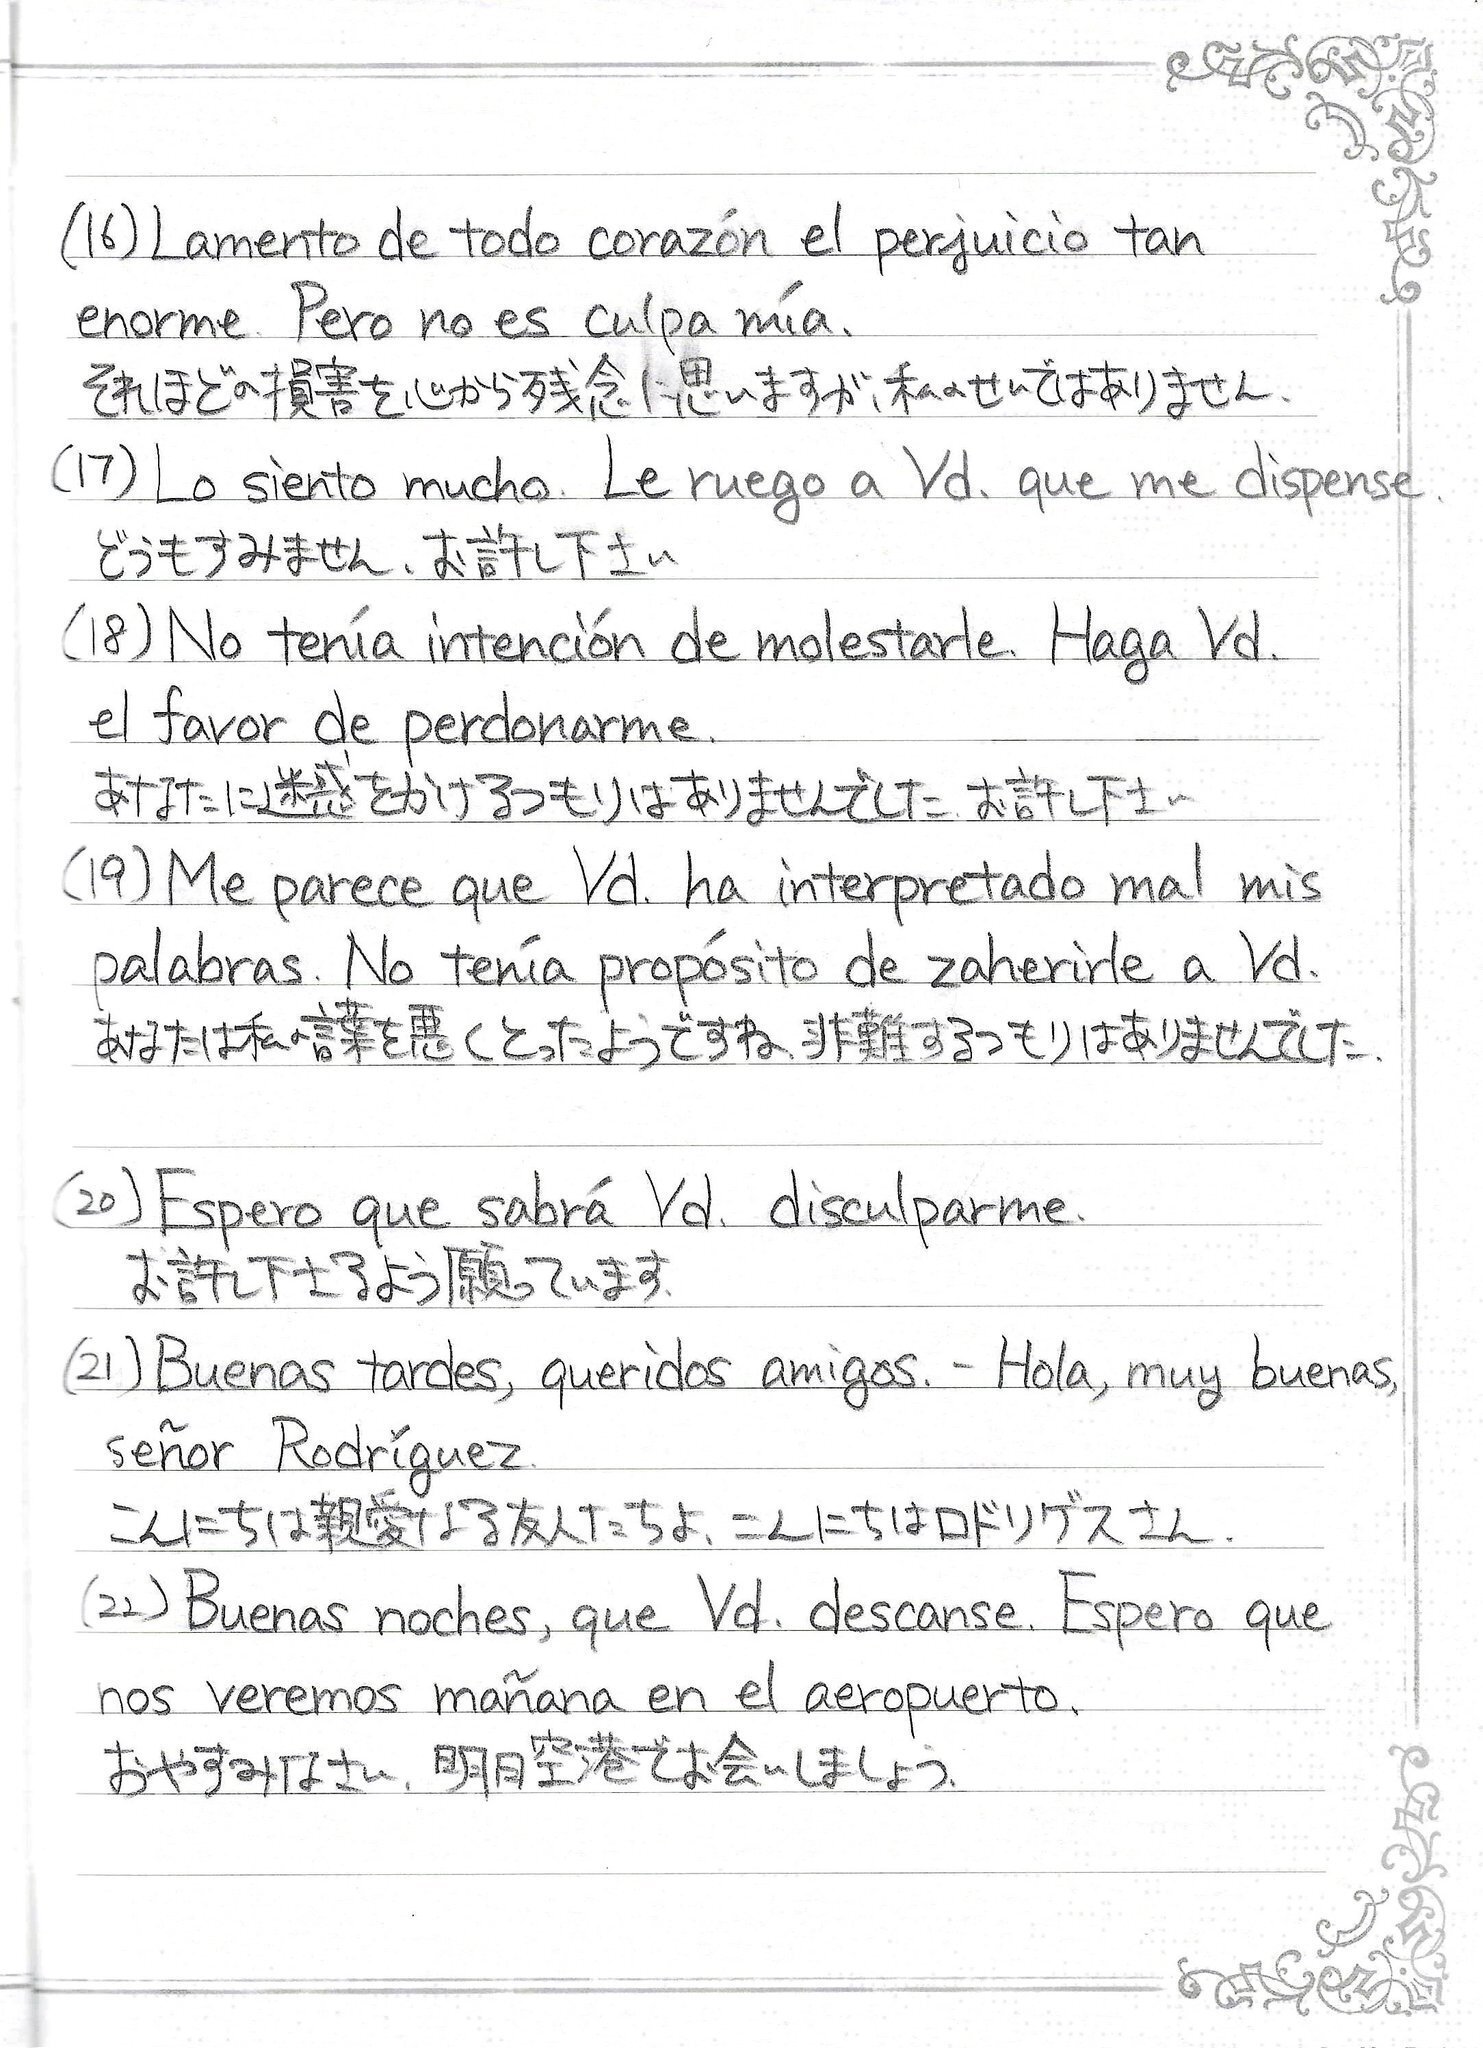 (16) Lamento de todo corazón el perjuicio tan
enorme. Pero no es culpa mía.
それほどの損害を心から残念に思いますが、私のせいではありません.
(17) Lo siento mucho. Le ruego a Vd. que me dispense.
どうもすみません、お許し下さい
(18) No tenía intención de molestarle. Haga Vd.
el favor de perdonarme.
あなたに迷惑をかけるつもりはありませんでした. お許し下さい
(19) Me parece que Vd. ha interpretado mal mis
palabras. No tenía propósito de zaherirle a Vd.
あなたは私の言葉を悪くとったようですね、非難するつもりはありませんでした.
(20) Espero que sabrá Vd. disculparme.
お許し下さるよう願っています.
(21) Buenas tardes, queridos amigos. - Hola, muy buenas,
señor Rodríguez.
こんにちは親愛なる友人たちよ、こんにちはロドリゲスさん.
(22) Buenas noches, que Vd. descanse. Espero que
nos veremos mañana en el aeropuerto.
おやすみなさい、明日空港でお会いしましょう.